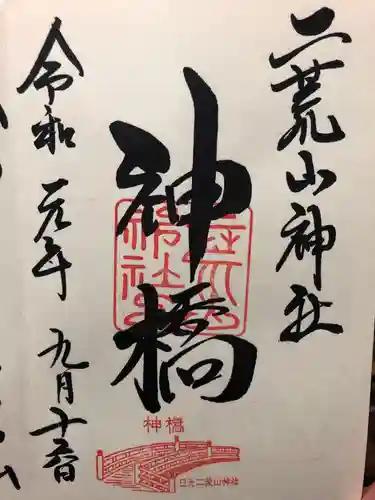 二荒山神社
神橋
令和元年 九月十五日
神橋
日光二荒山神社